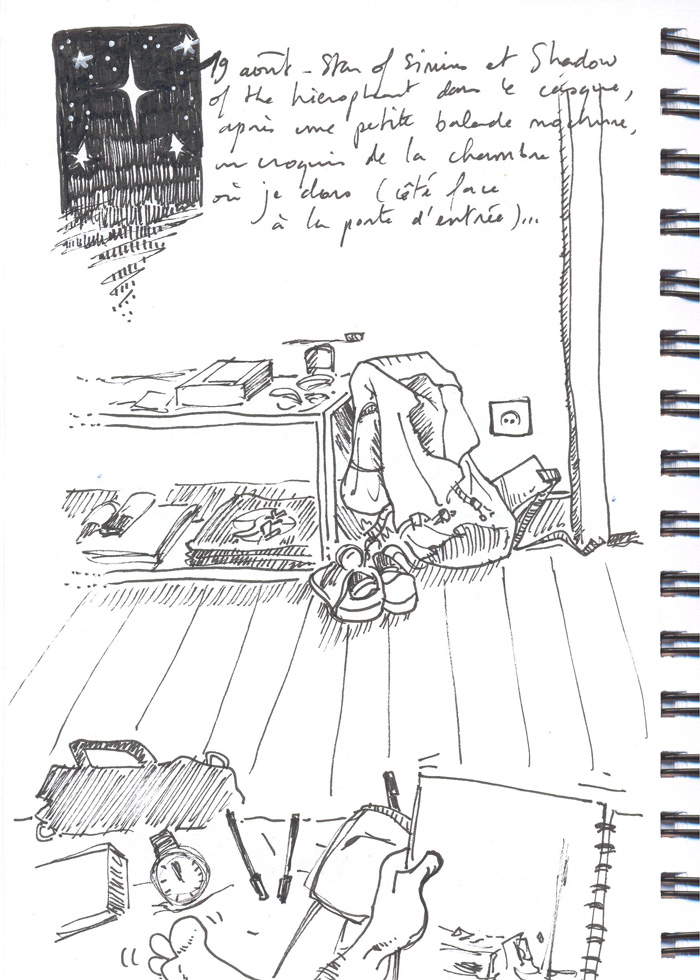 19 août - Star of Sirius et Shadow
of the hierophant dans le casque,
après une petite balade nocturne,
un croquis de la chambre
où je dors (côté face
à la porte d'entrée)...